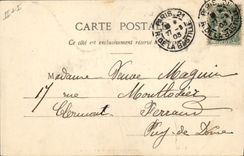 CARTE POSTALE
Ce côté est exclusivement réservé à l'adresse
PARIS
R. DE LA BASTILLE
Madame Veuve Magnin
17 rue Montlosier
Clermont Ferrand
Puy-de-Dôme